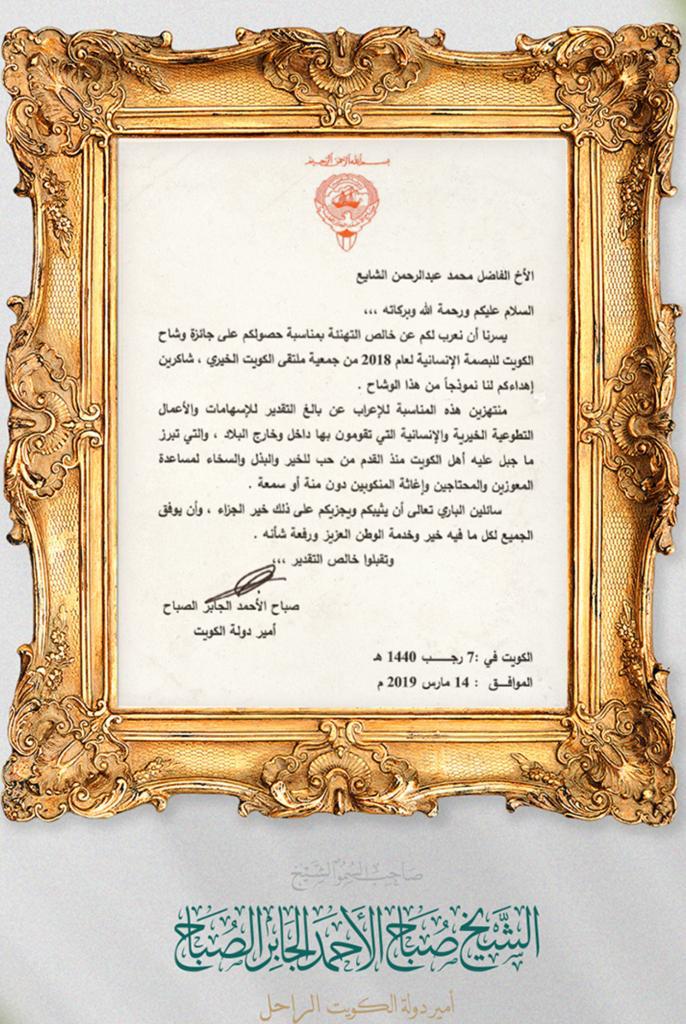 بسم الله الرحمن الرحيم
الأخ الفاضل محمد عبدالرحمن الشايع
السلام عليكم ورحمة الله وبركاته ،،،
يسرنا أن نعرب لكم عن خالص التهنئة بمناسبة حصولكم على جائزة وشاح
الكويت للبصمة الإنسانية لعام 2018 من جمعية ملتقى الكويت الخيري ، شاكرين
إهداءكم لنا نموذجاً من هذا الوشاح .
منتهزين هذه المناسبة للإعراب عن بالغ التقدير للإسهامات والأعمال
التطوعية الخيرية والإنسانية التي تقومون بها داخل وخارج البلاد ، والتي تبرز
ما جبل عليه أهل الكويت منذ القدم من حب للخير والبذل والسخاء لمساعدة
المعوزين والمحتاجين وإغاثة المنكوبين دون منة أو سمعة .
سائلين الباري تعالى أن يثيبكم ويجزيكم على ذلك خير الجزاء ، وأن يوفق
الجميع لكل ما فيه خير وخدمة الوطن العزيز ورفعة شأنه .
وتقبلوا خالص التقدير ،،،
صباح الأحمد الجابر الصباح
أمير دولة الكويت
الكويت في :7 رجـــب 1440 هـ
الموافـق : 14 مارس 2019 م
صاحب السمو الشيخ
الشيخ صباح الأحمد الجابر الصباح
أمير دولة الكويت الراحل